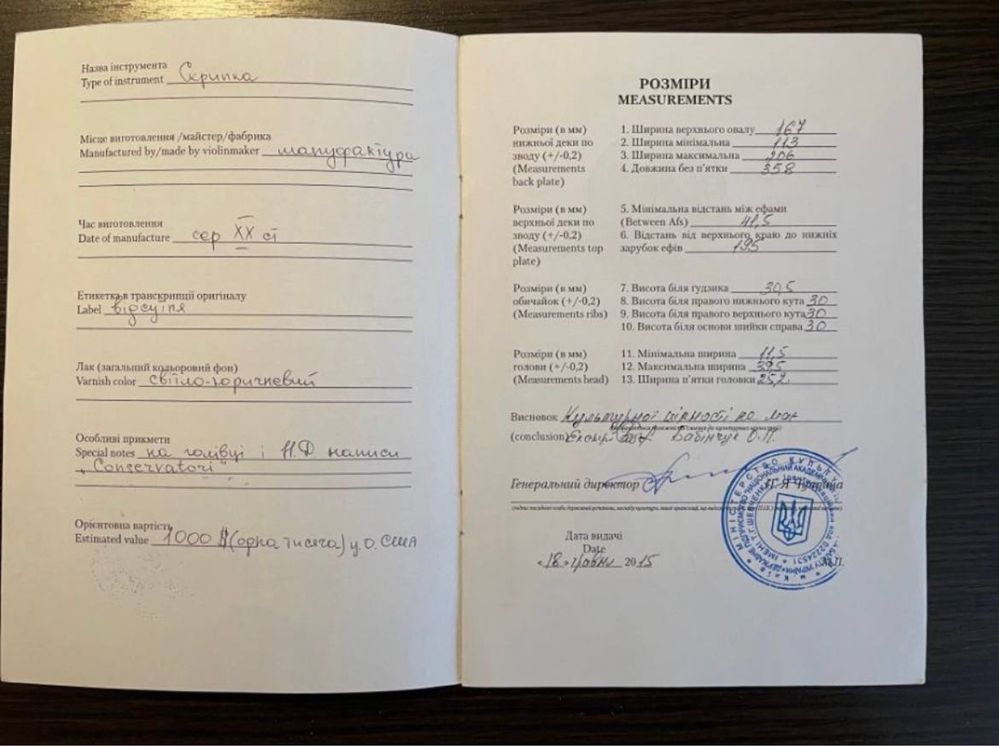 Назва інструмента
Type of instrument Скрипка
Місце виготовлення /майстер/фабрика
Manufactured by/made by violinmaker мануфактура
Час виготовлення
Date of manufacture сер XX ст
Етикетка в транскрипції оригіналу
Label відсутня
Лак (загальний кольоровий фон)
Varnish color світло-коричневий
Особливі прикмети
Special notes на голівці і Н.Д написи
"Conservatori"
Орієнтовна вартість
Estimated value 1000 $ (одна тисяча) у.о. США
РОЗМІРИ
MEASUREMENTS
Розміри (в мм)
нижньої деки по
зводу (+/-0,2)
(Measurements
back plate)
1. Ширина верхнього овалу 167
2. Ширина мінімальна 113
3. Ширина максимальна 206
4. Довжина без п'ятки 358
Розміри (в мм)
верхньої деки по
зводу (+/-0,2)
(Measurements top
plate)
5. Мінімальна відстань між ефами
(Between Afs) 41,5
6. Відстань від верхнього краю до нижніх
зарубок ефів 195
Розміри (в мм)
обичайок (+/-0,2)
(Measurements ribs)
7. Висота біля гудзика 30,5
8. Висота біля правого нижнього кута 30
9. Висота біля правого верхнього кута 30
10. Висота біля основи шийки справа 30
Розміри (в мм)
голови (+/-0,2)
(Measurements head)
11. Мінімальна ширина 11,5
12. Максимальна ширина 39,5
13. Ширина п'ятки головки 25,2
Висновок Культурної цінності не має
(conclusion)
Генеральний директор
Дата видачі
Date
«18» травня 2015
М.П.